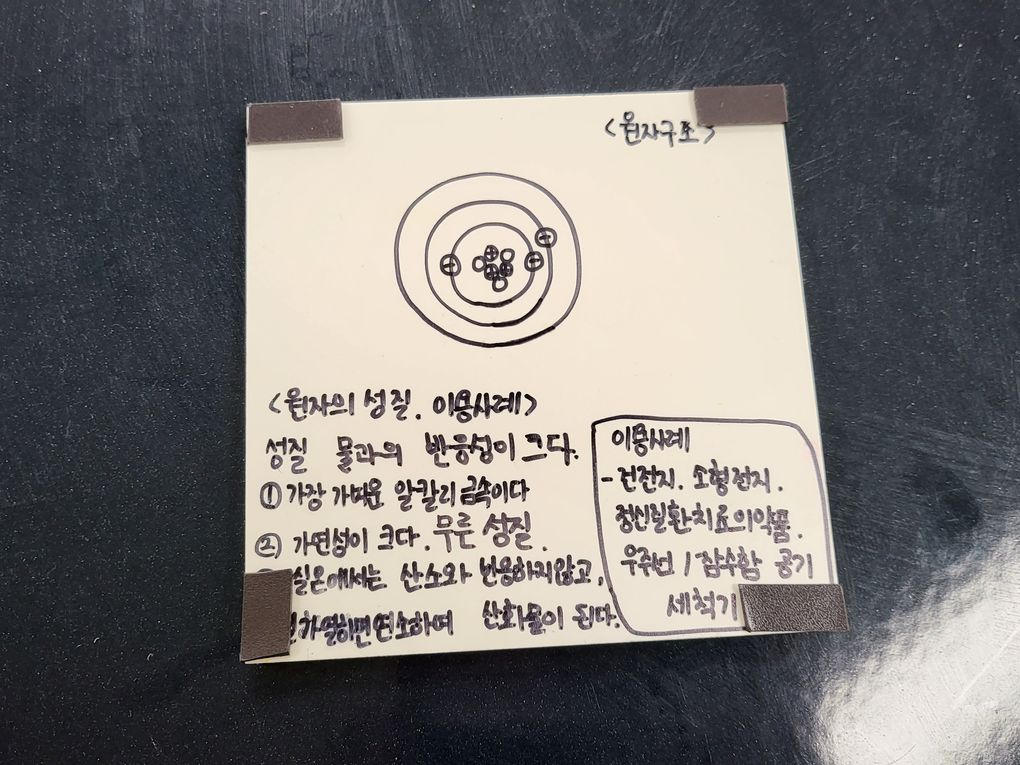 <원자구조>
<원자의 성질. 이용사례>
성질 물과의 반응성이 크다.
① 가장 가벼운 알칼리 금속이다
② 가연성이 크다. 무른 성질.
실온에서는 산소와 반응하지않고,
가열하면연소하며 산화물이 된다.
이용사례
- 건전지. 소형전지.
정신질환치료의약품.
우주선 / 잠수함 공기
세척기